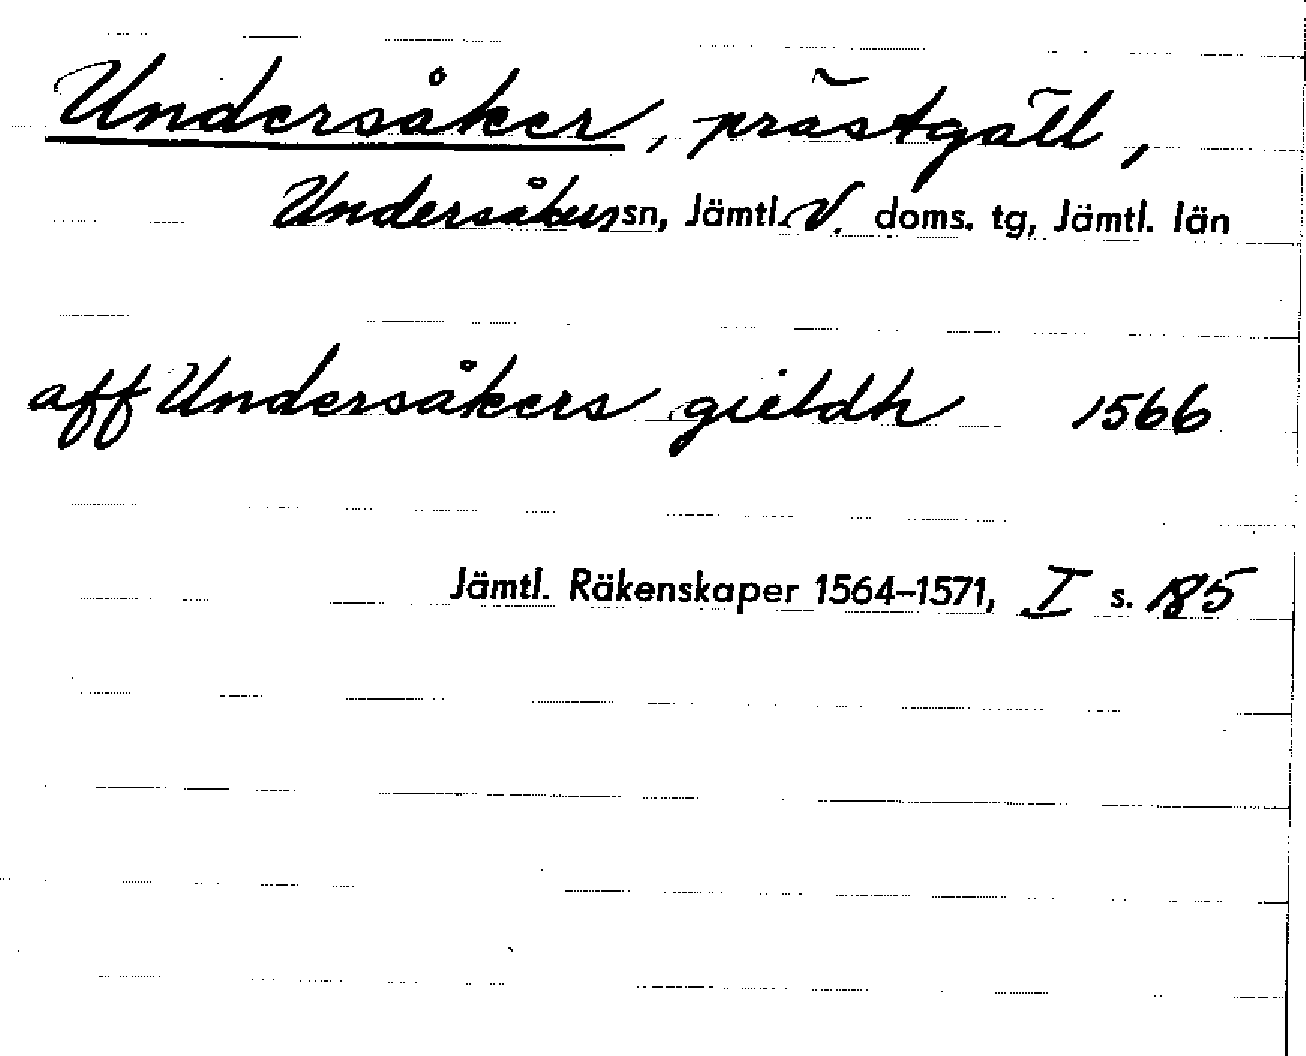 Undersåker, prästgäll,
Undersåkers sn, Jämtl. V. doms. tg, Jämtl. län
aff Undersåkers gieldh 1566
Jämtl. Räkenskaper 1564–1571, I s. 185